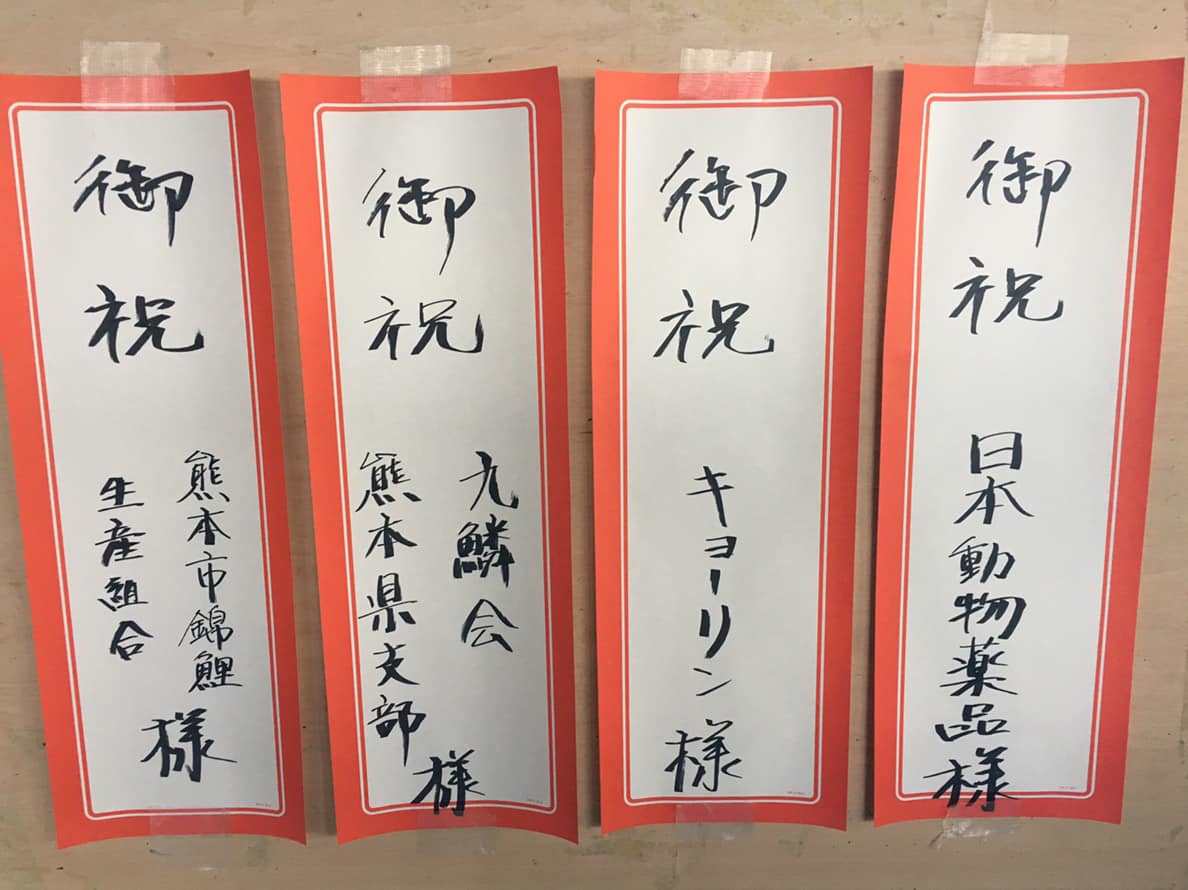 御祝
日本動物薬品様
御祝
キョーリン様
御祝
九鱗会
熊本県支部
様
御祝
熊本市錦鯉
生産組合
様